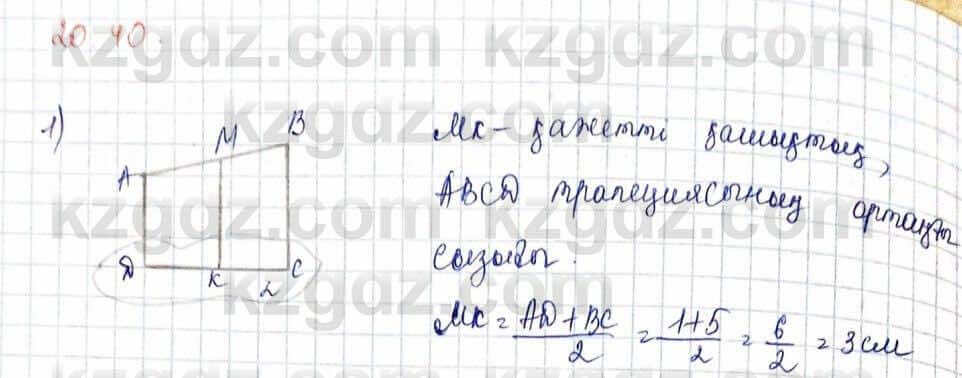 20.40.
1)
A M B
D K C
2
MK - қажетті қашықтық,
ABCD трапециясының ортаңғы
сызығы.
MK = AD+BC/2 = 1+5/2 = 6/2 = 3 см
kzgdz.com kzgdz.com
kzgdz.com kzgdz.com
kzgdz.com kzgdz.com